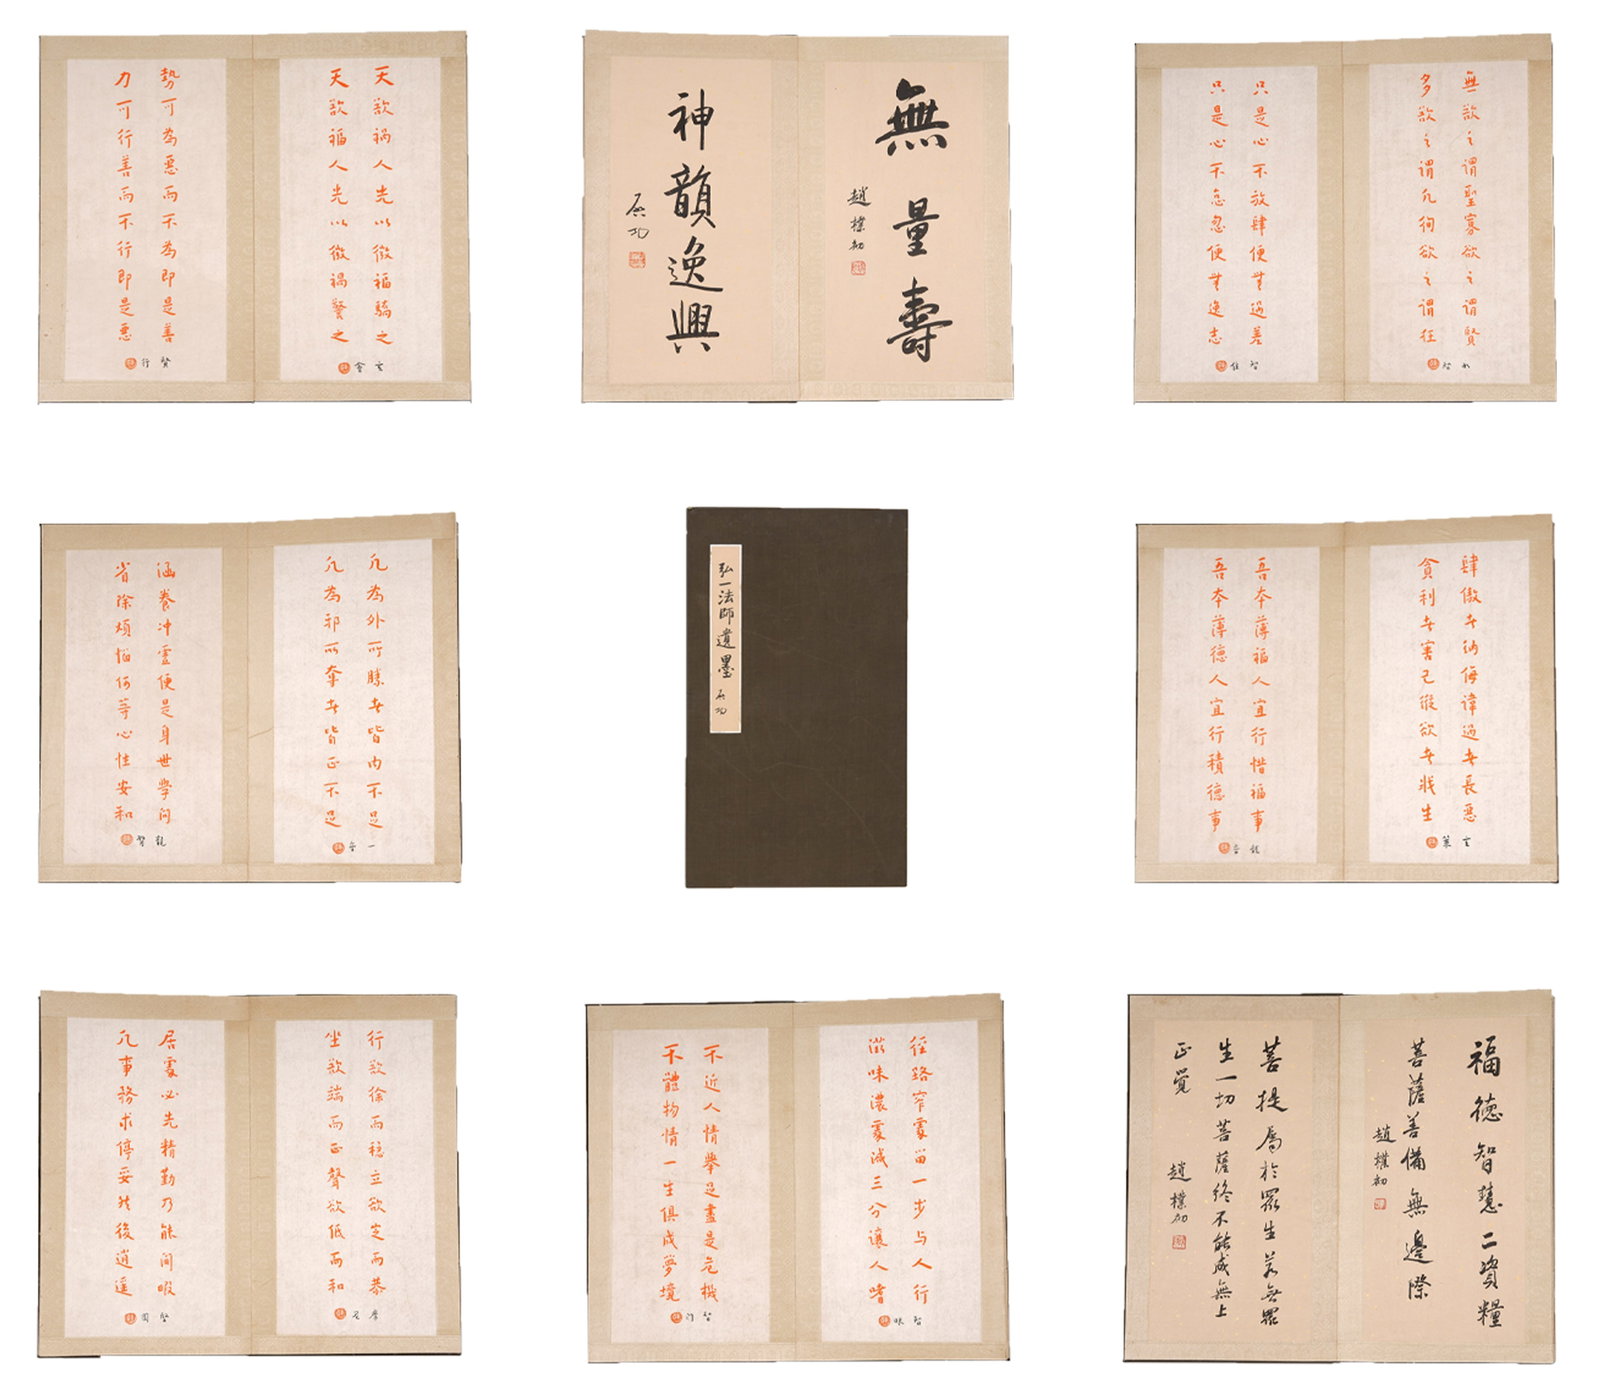 天欲祸人先以微福驕之
天欲福人先以微祸警之
玄會
勢可為惡而不為即是善
力可行善而不行即是惡
賢行
無量壽
趙樸初
神韻逸興
启功
無欲之谓聖寡欲之谓賢
多欲之谓凡徇欲之谓狂
智
只是心不放肆便無過差
只是心不怠忽便無逸志
智住
凡為外所勝者皆内不足
凡為邪所奪者皆正不足
一音
涵養冲虛便是身世學问
省除煩惱何等心性安和
龍臂
弘一法師遺墨
启功
肆傲者纳侮諱過者長惡
貪利者害己縱欲者戕生
玄策
吾本薄福人宜行惜福事
吾本薄德人宜行積德事
龍音
行欲徐而稳立欲定而恭
坐欲端而正聲欲低而和
居處必先精勤乃能闲暇
凡事務求停妥然後逍遥
徑路窄處留一步与人行
滋味濃處減三分讓人嗜
智味
不近人情舉足盡是危機
不體物情一生俱成夢境
智门
福德智慧二資糧
菩薩善備無邊際
趙樸初
菩提屬於眾生若無眾
生一切菩薩終不能成無上
正覺
趙樸初